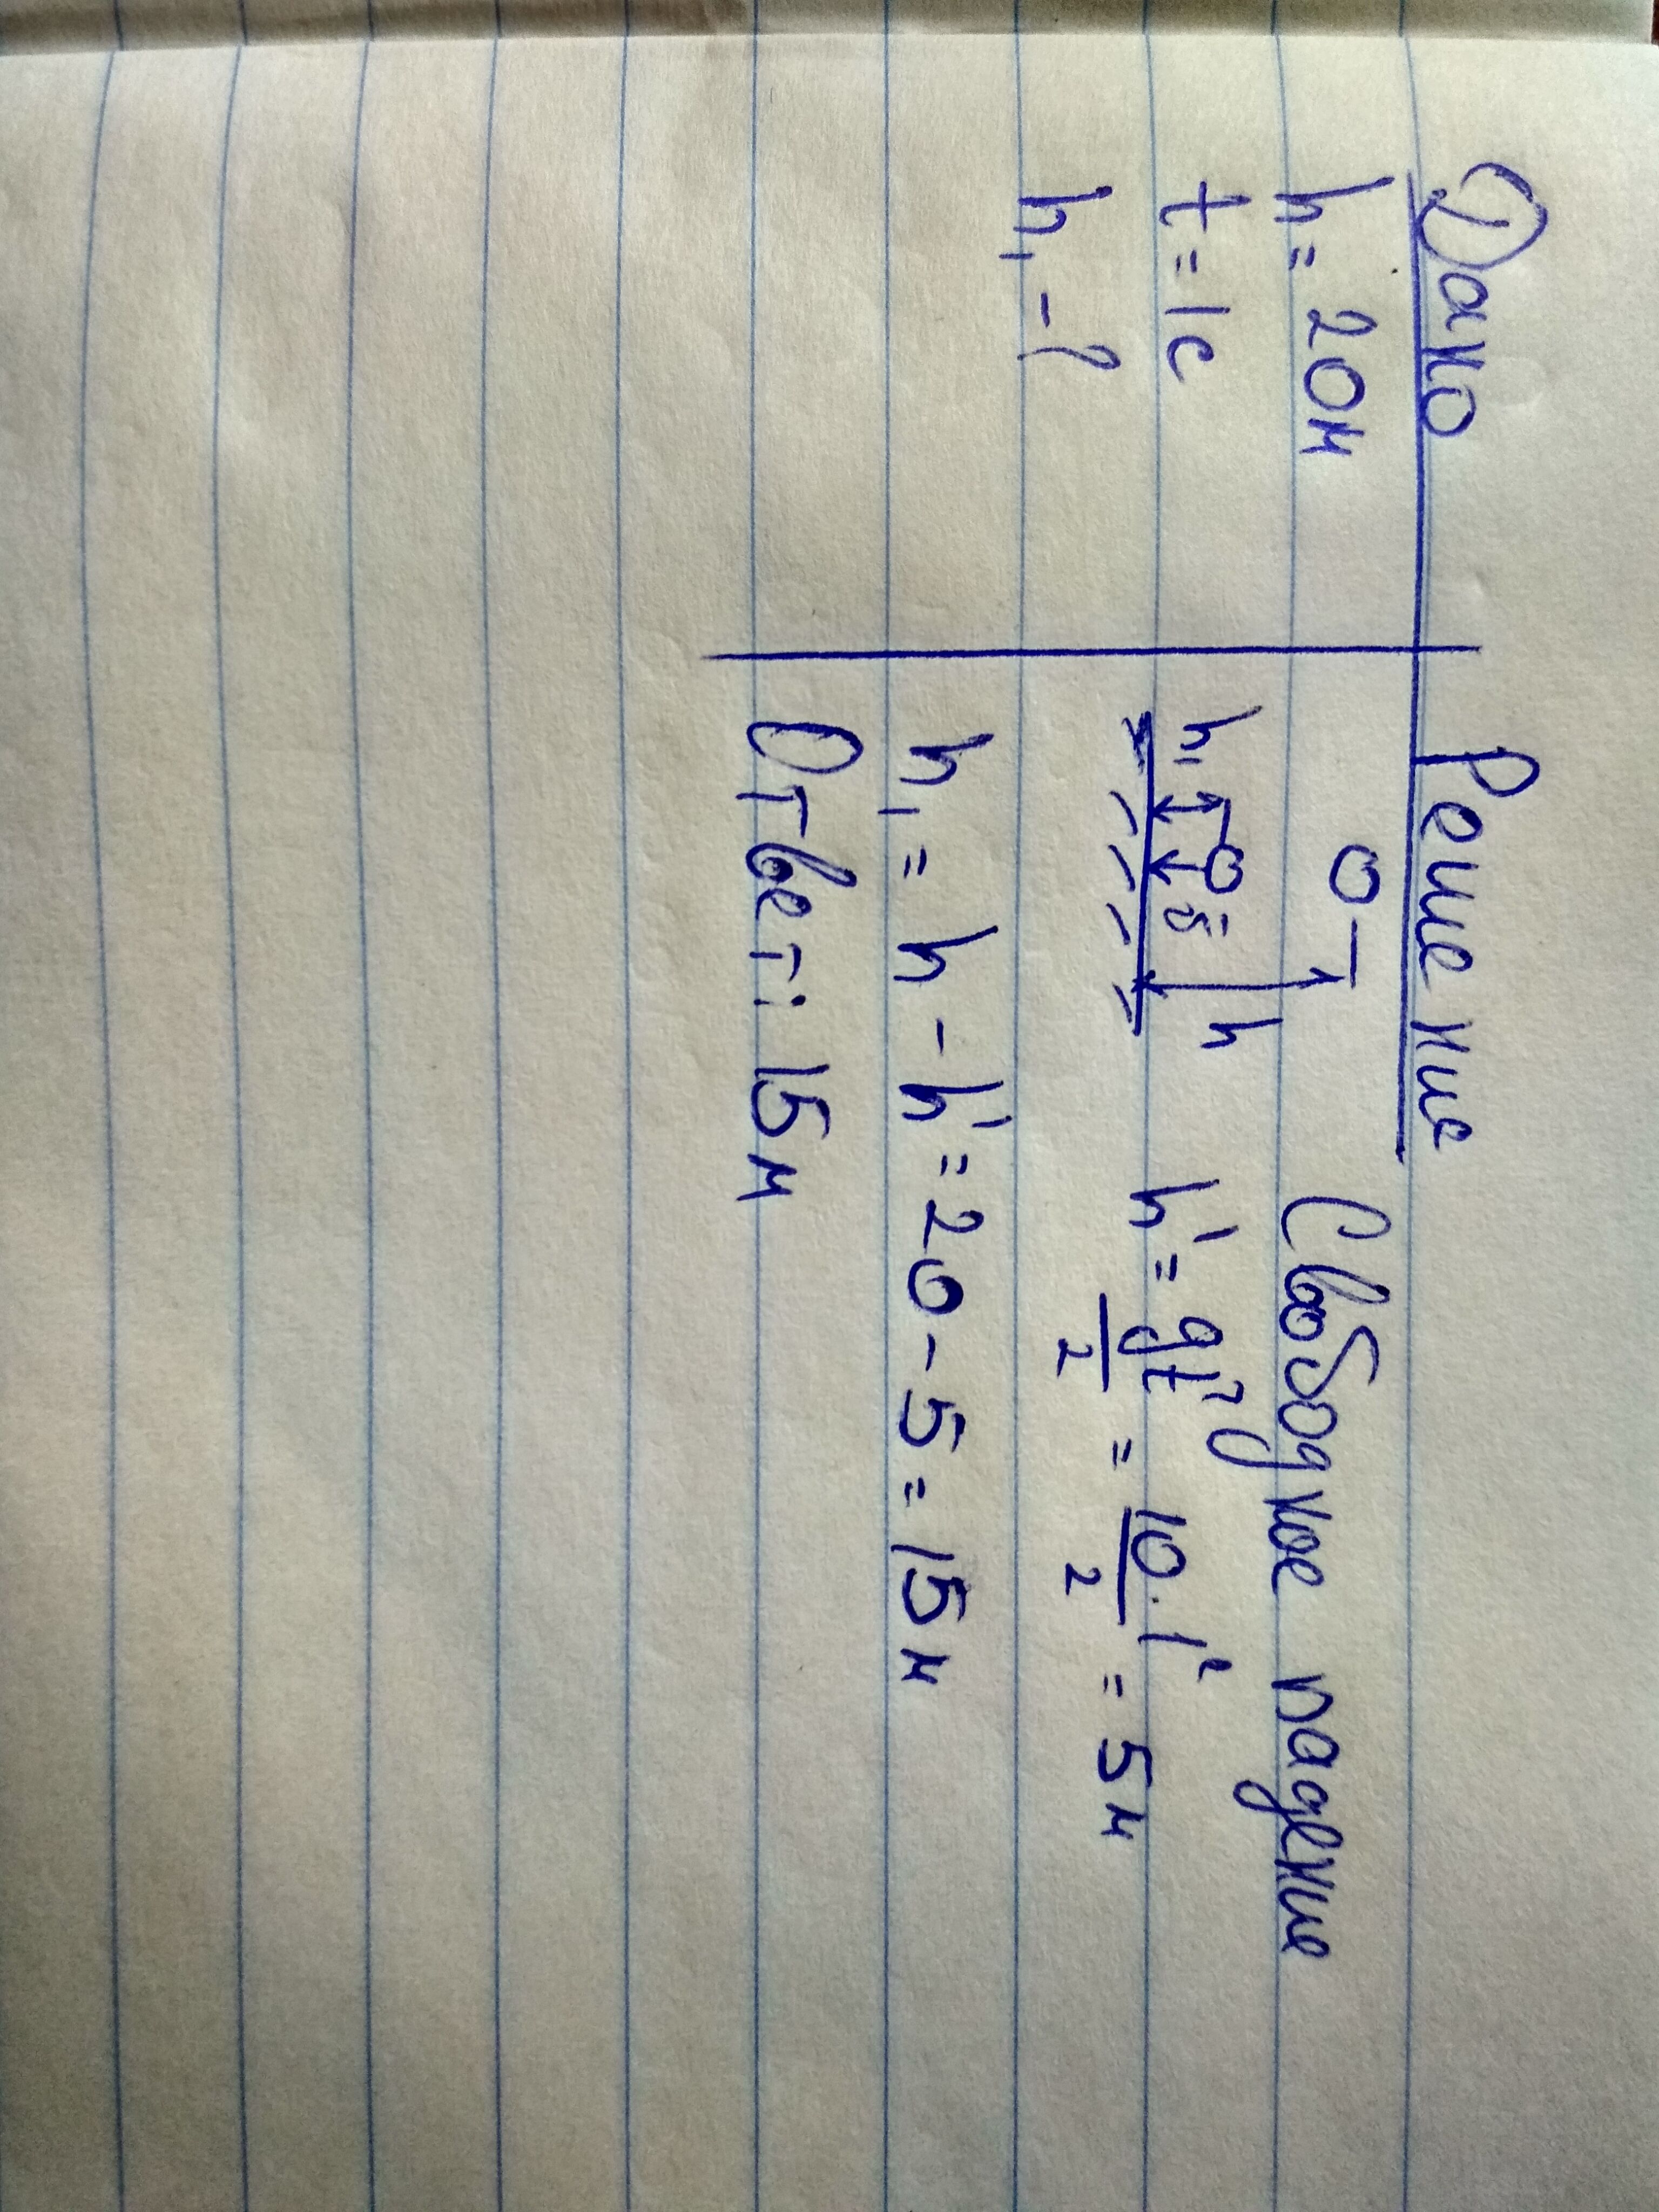 Дано
h = 20м
t = 1с
h₁ - ?
Решение
h₁
v̄
h
Свободное падение
h' = gt²/2 = 10·1²/2 = 5м
h₁ = h - h' = 20 - 5 = 15м
Ответ: 15м